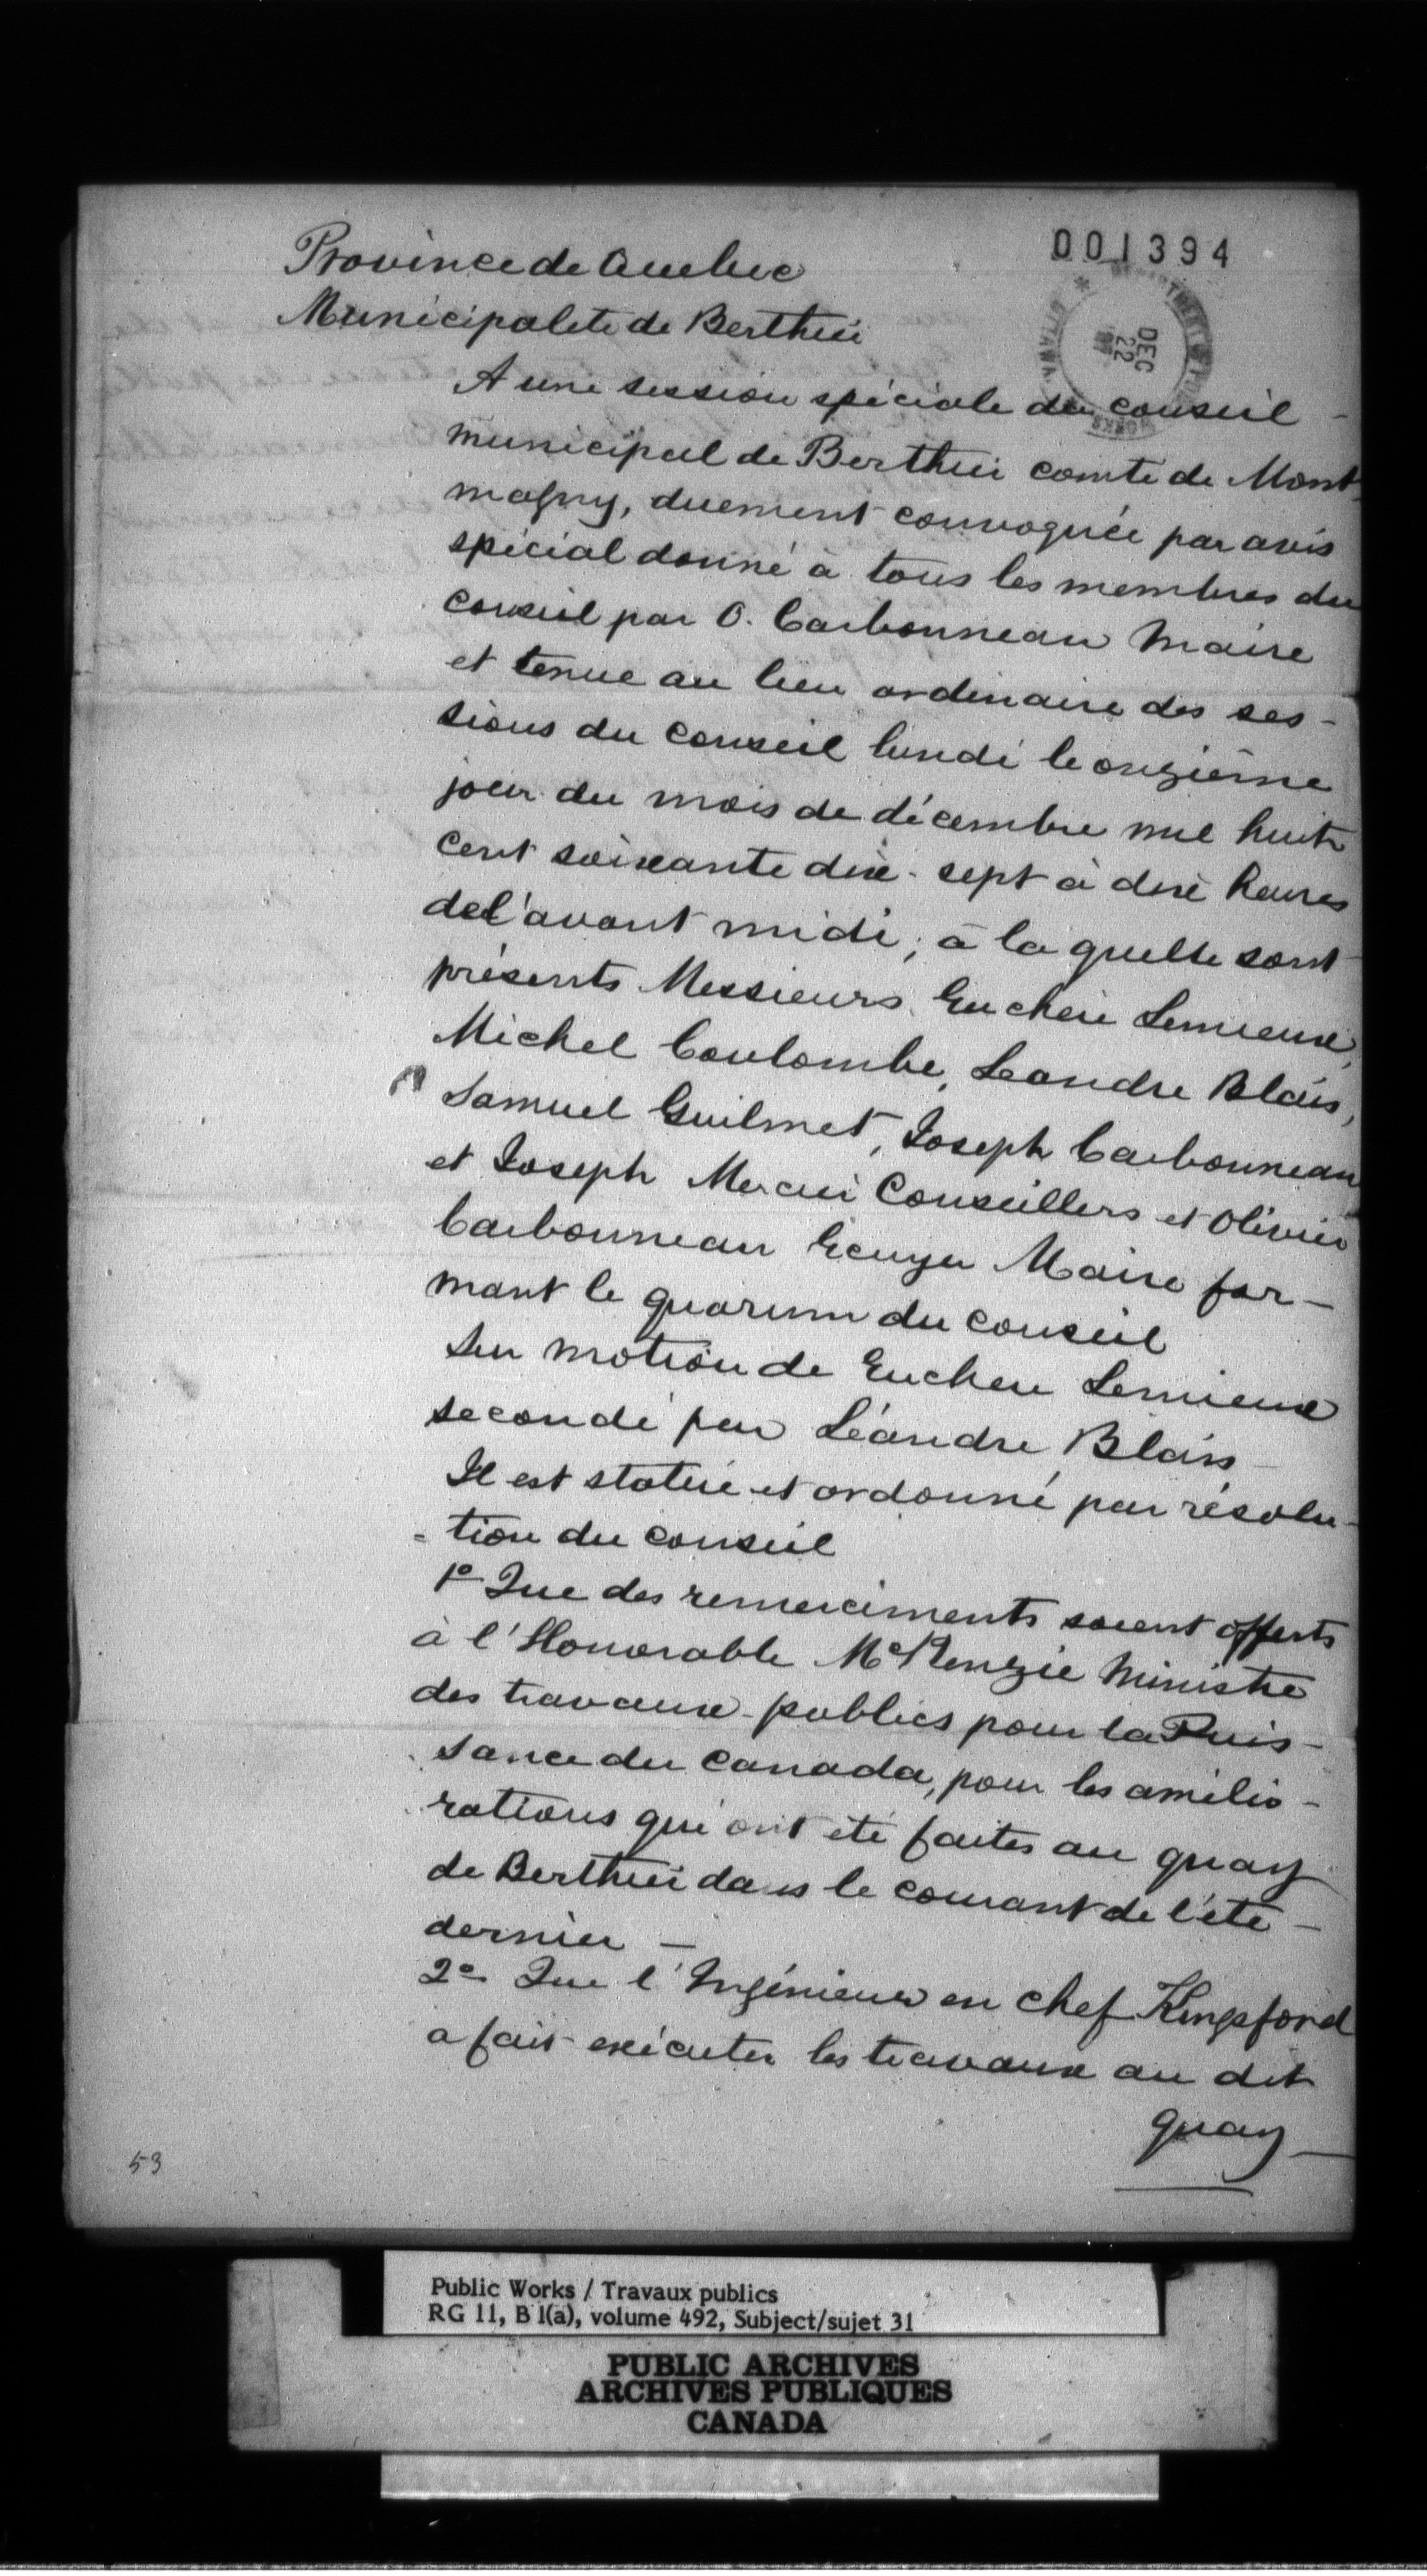 001394
Province de Quebec
DEPARTMENT PUBLIC WORKS OTTAWA
DEC
22
Municipalité de Berthier
A une session spéciale du conseil
municipal de Berthier comté de Mont-
magny, duement convoquée par avis
spécial donné à tous les membres du
conseil par O. Carbonneau Maire
et tenue au lieu ordinaire des ses-
sions du conseil lundi le onzième
jour du mois de décembre mil huit
cent soixante dix-sept à dix heures
de l'avant midi, à la quelle sont
présents Messieurs Eucher Lemieux,
Michel Coulombe, Leandre Blais,
Samuel Guilmet, Joseph Carbonneau
et Joseph Mercier Conseillers et Olivier
Carbonneau Ecuyer Maire for-
mant le quorum du conseil
Sur motion de Eucher Lemieux
secondé par Léandre Blais
Il est statué et ordonné par résolu-
=tion du conseil
1º Que des remerciments soient offerts
à l'Honorable McKenzie Ministre
des travaux-publics pour la Puis-
sance du Canada, pour les amélio-
rations qui ont été faites au quay
de Berthier dans le courant de l'été-
dernier -
2º Que l'Ingénieur en chef Kingsford
a fait exécuter les travaux au dit
quay
53
Public Works / Travaux publics
RG 11, B 1(a), volume 492, Subject/sujet 31
PUBLIC ARCHIVES
ARCHIVES PUBLIQUES
CANADA